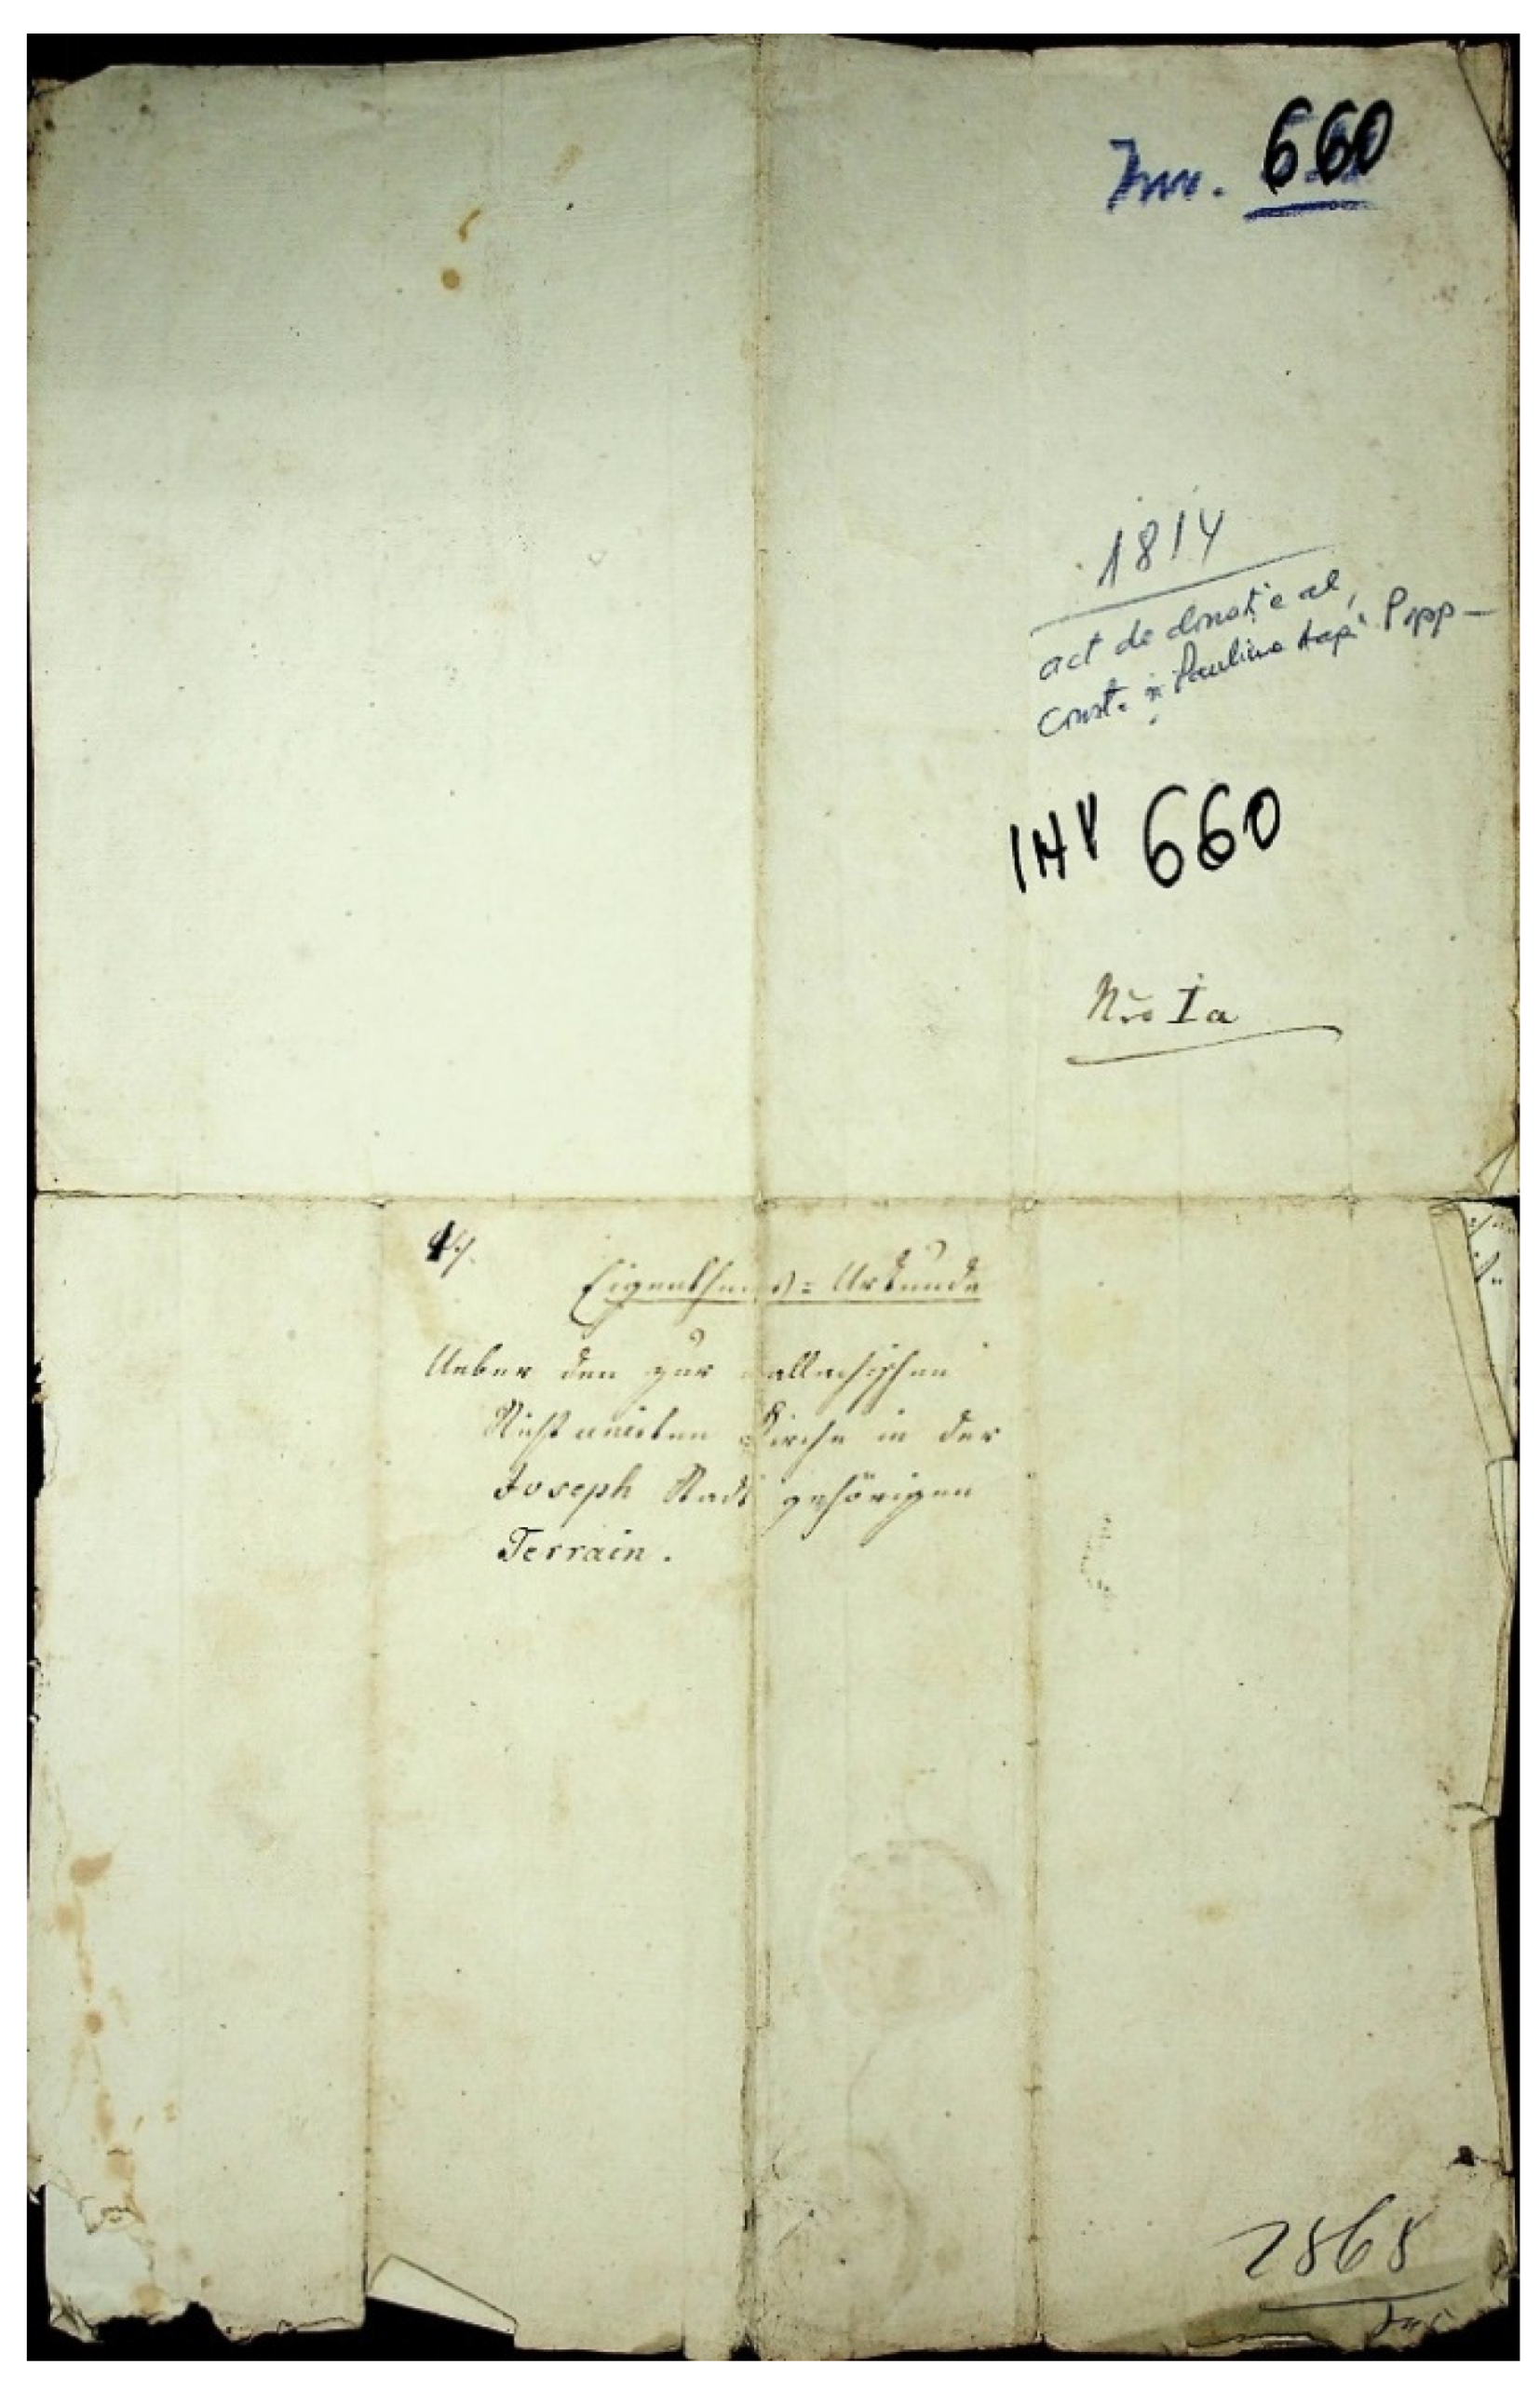 Inv. 660
1814
act de donație al
Const. și Paulina Popp –
INV 660
Nro Ia
Eigenthums = Urkunde
Ueber den zur wallachischen
Nicht unirten Kirche in der
Joseph Stadt gehörigen
Terrain.
2868